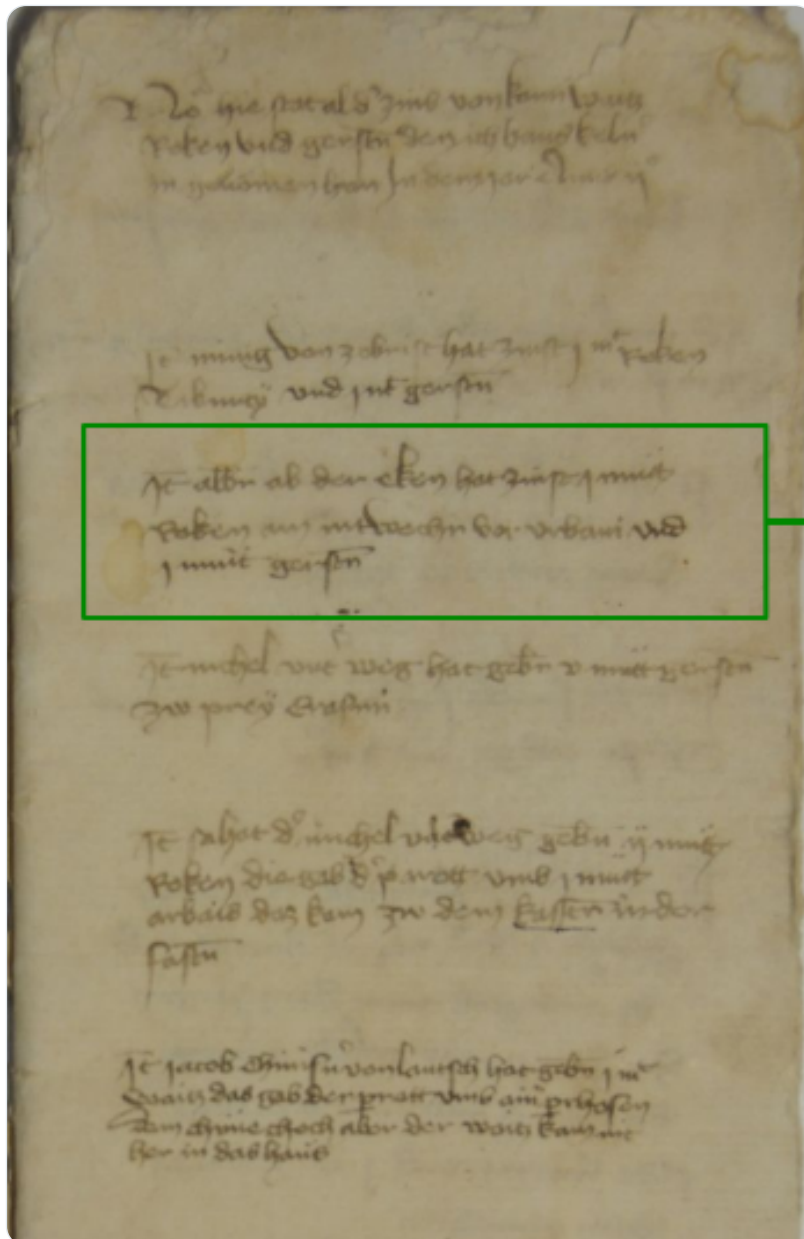 Nō hie stat al dʾ zins von korn waitz
Roken vnd gerstn̄ den ich hans kelnʾ
In genomen han In dem iar
It̄ minig von hat zinst j mt̄ Roken
Tiburcÿ vnd j mt̄ gerstn̄
It̄ albr̄ ab der eken hat zinst j mutt
Roken am mitwochn̄ vor vrbani vnd
j mutt gerstn̄
It̄ michel vnt̄ weg hat gebn̄ v mutt gerstn̄
zw preÿ Erasmi
It̄ hat dʾ michel vnt̄ weg gebn̄ ij mutt
Roken die gab dʾ prott vmb j mutt
arbais daz kam zw dem kasten in der
fastn̄
It̄ jacob von lantsch hat gebn̄ j mt̄
waitz das gab der prott vmb ain
dem abor der waitz kam nit
her in das haus